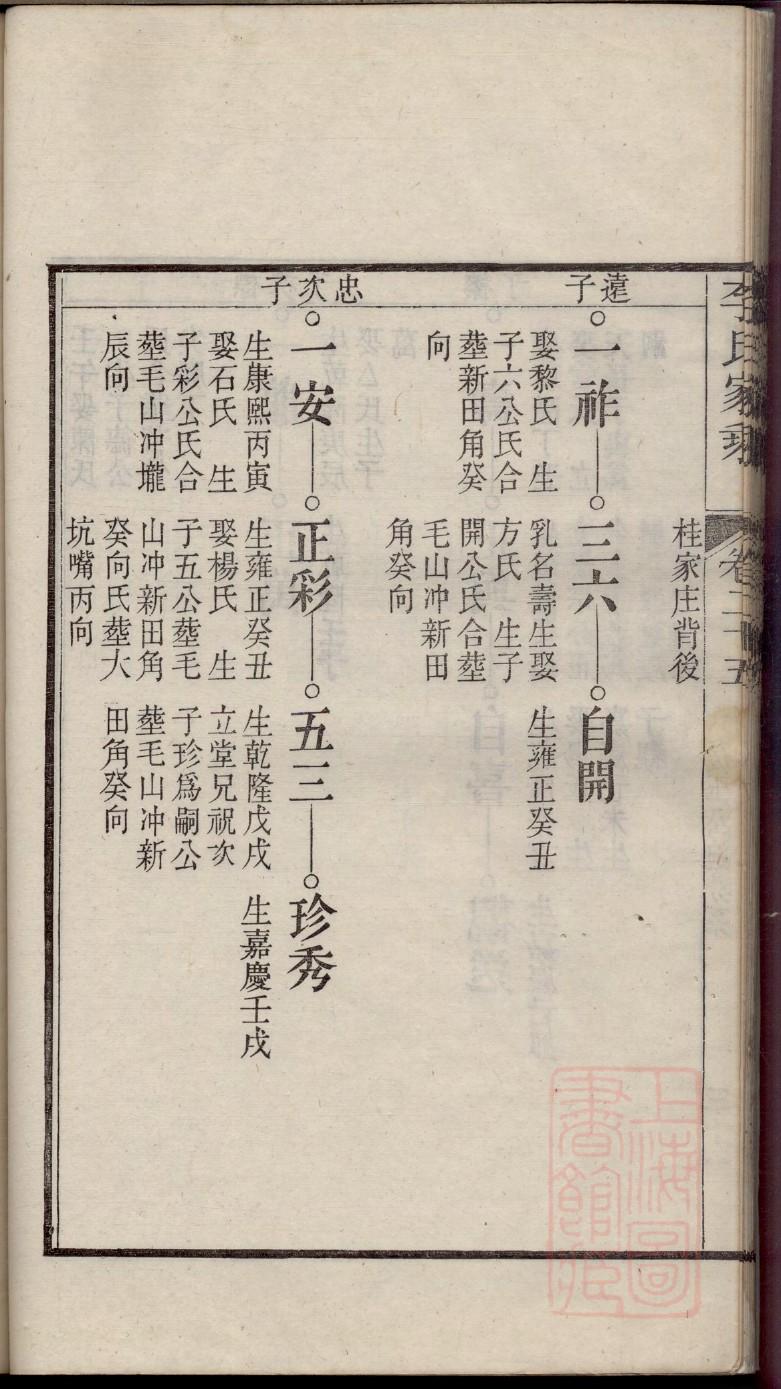 李氏家乘
卷二十五
桂家庄背後
遠子
一祚
娶黎氏　生
子六公氏合
塟新田角癸
向
三六
乳名壽生娶
方氏　生子
開公氏合塟
毛山冲新田
角癸向
自開
生雍正癸丑
忠次子
一安
生康熙丙寅
娶石氏　生
子彩公氏合
塟毛山冲壠
辰向
正彩
生雍正癸丑
娶楊氏　生
子五公塟毛
山冲新田角
癸向氏塟大
坑嘴丙向
五三
生乾隆戊戌
立堂兄祝次
子珍爲嗣公
塟毛山冲新
田角癸向
珍秀
生嘉慶壬戌
上海圖
書館藏